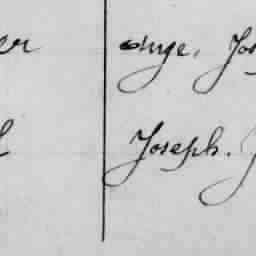 er onge. Jos
Joseph. J